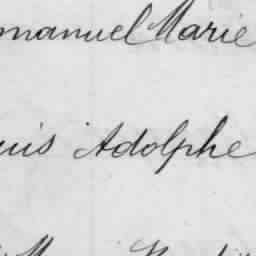 mmanuel Marie
uis Adolphe